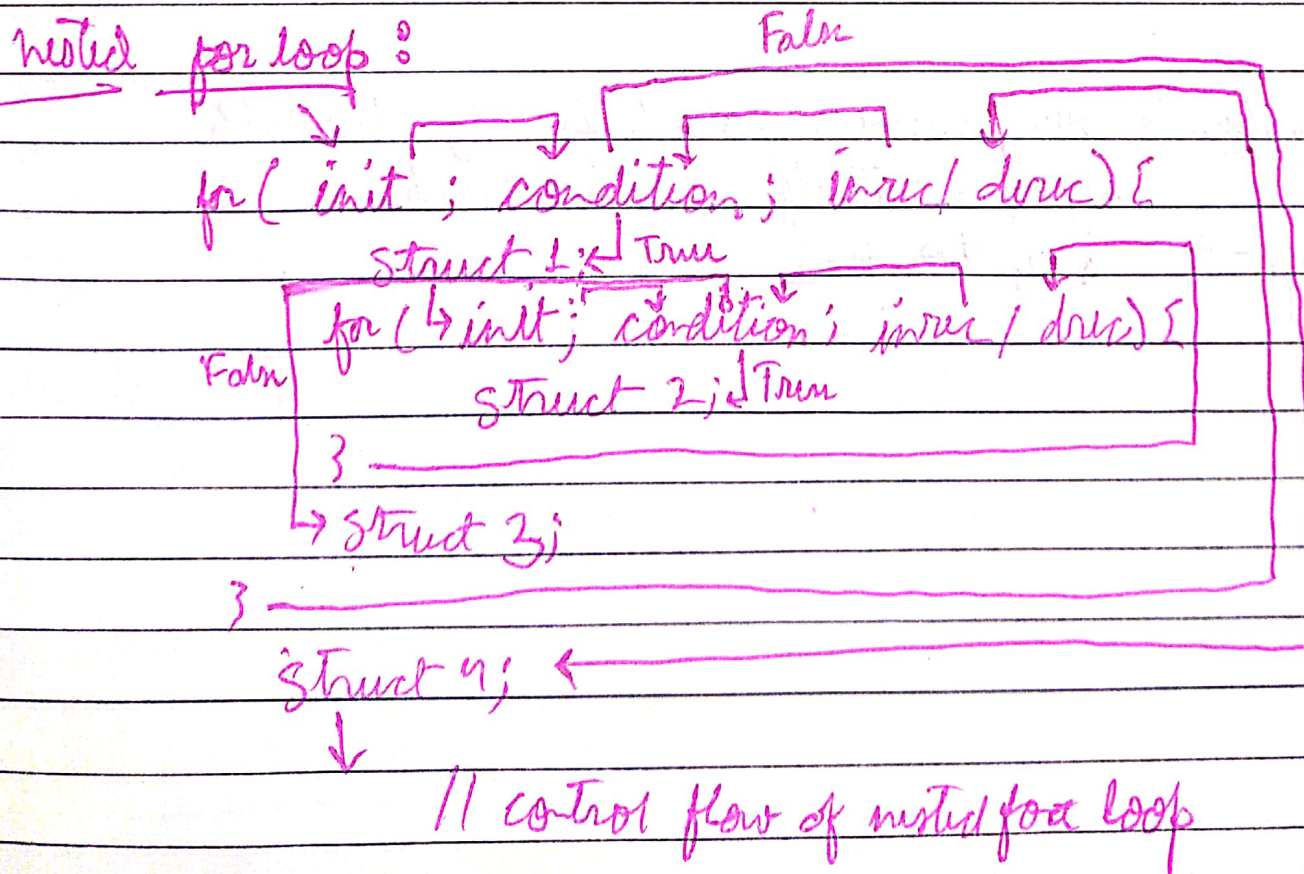 nested for loop :
False
for ( init ; condition ; increc / decrec ) {
struct 1; True
for ( init ; condition ; increc / drec ) {
False
struct 2; True
}
struct 3;
}
struct 4;
// control flow of nested for loop